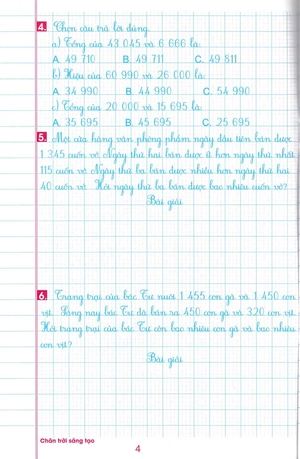 4. Chọn câu trả lời đúng.
a) Tổng của 43 045 và 6 666 là:
A. 49 710 B. 49 711 C. 49 811
b) Hiệu của 60 990 và 26 000 là:
A. 34 990 B. 44 990 C. 54 990
c) Tổng của 20 000 và 15 695 là:
A. 35 695 B. 45 695 C. 25 695
5. Một cửa hàng văn phòng phẩm ngày đầu tiên bán được
1 345 cuốn vở. Ngày thứ hai bán được ít hơn ngày thứ nhất
115 cuốn vở. Ngày thứ ba bán được nhiều hơn ngày thứ hai
40 cuốn vở. Hỏi ngày thứ ba bán được bao nhiêu cuốn vở?
Bài giải
6. Trang trại của bác Tư nuôi 1 455 con gà và 1 450 con
vịt. Sáng nay bác Tư đã bán ra 450 con gà và 320 con vịt.
Hỏi trang trại của bác Tư còn bao nhiêu con gà và bao nhiêu
con vịt?
Bài giải
Chân trời sáng tạo
4